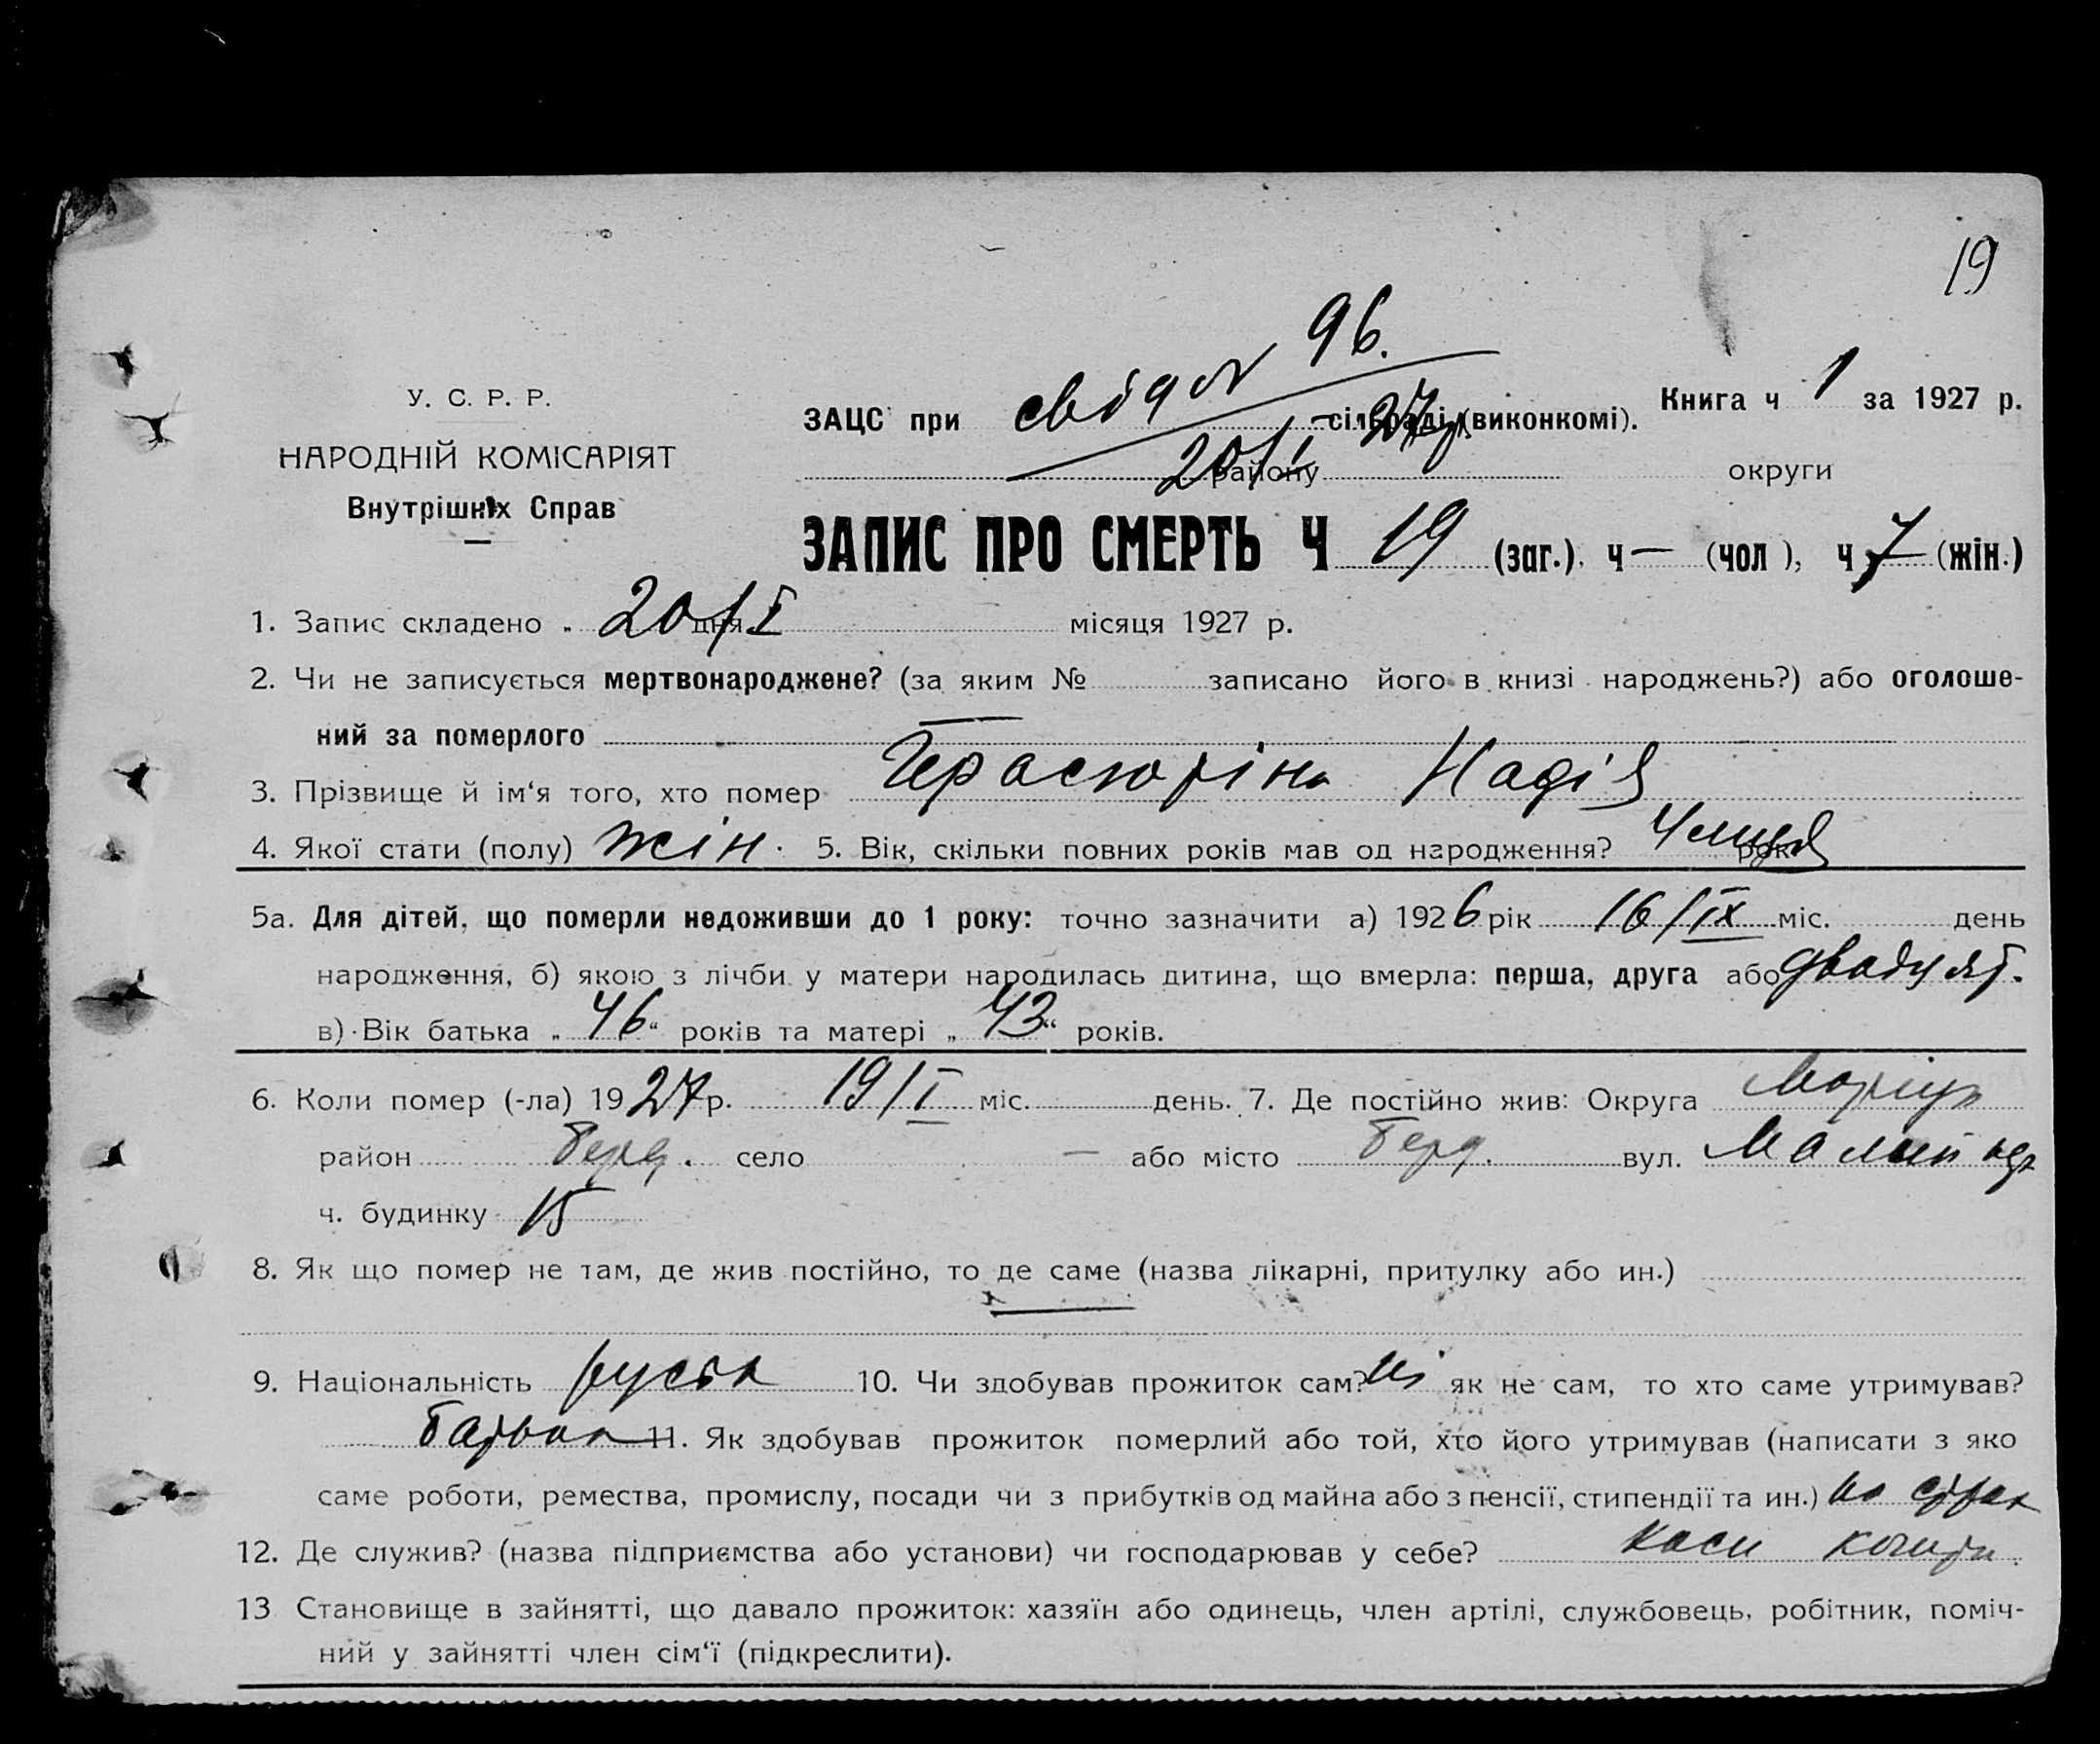 19
96.
У. С. Р. Р.
ЗАЦС при сільраді (виконкомі). Книга ч 1 за 1927 р.
20/I 27р.
НАРОДНІЙ КОМІСАРІЯТ
району округи
Внутрішніх Справ
ЗАПИС ПРО СМЕРТЬ Ч 19 (заг.). ч — (чол ), ч 7 (жін.)
1. Запис складено „ 20/I дня місяця 1927 р.
2. Чи не записується мертвонароджене? (за яким № записано його в книзі народжень?) або оголоше-
ний за померлого —
3. Прізвище й ім‘я того, хто помер Надія
4. Якої стати (полу) жін. 5. Вік, скільки повних років мав од народження? 4 рок.
5а. Для дітей, що померли недоживши до 1 року: точно зазначити а) 1926 рік 16/IX міс. день
народження, б) якою з лічби у матери народилась дитина, що вмерла: перша, друга або двадцят.
в) Вік батька „ 46 “ років та матері „ 43 “ років.
6. Коли помер (-ла) 1927 р. 19/I міс. день. 7. Де постійно жив: Округа Маріуп
район Берд. село — або місто Берд. вул.
ч. будинку 15
8. Як що помер не там, де жив постійно, то де саме (назва лікарні, притулку або ин.)
9. Національність руська 10. Чи здобував прожиток сам? Ні як не сам, то хто саме утримував?
батько 11. Як здобував прожиток померлий або той, хто його утримував (написати з яко
саме роботи, ремества, промислу, посади чи з прибутків од майна або з пенсії, стипендії та ин.) на страх
12. Де служив? (назва підприємства або установи) чи господарював у себе? каси кошти
13 Становище в зайнятті, що давало прожиток: хазяїн або одинець, член артілі, службовець, робітник, поміч-
ний у зайнятті член сім‘ї (підкреслити).